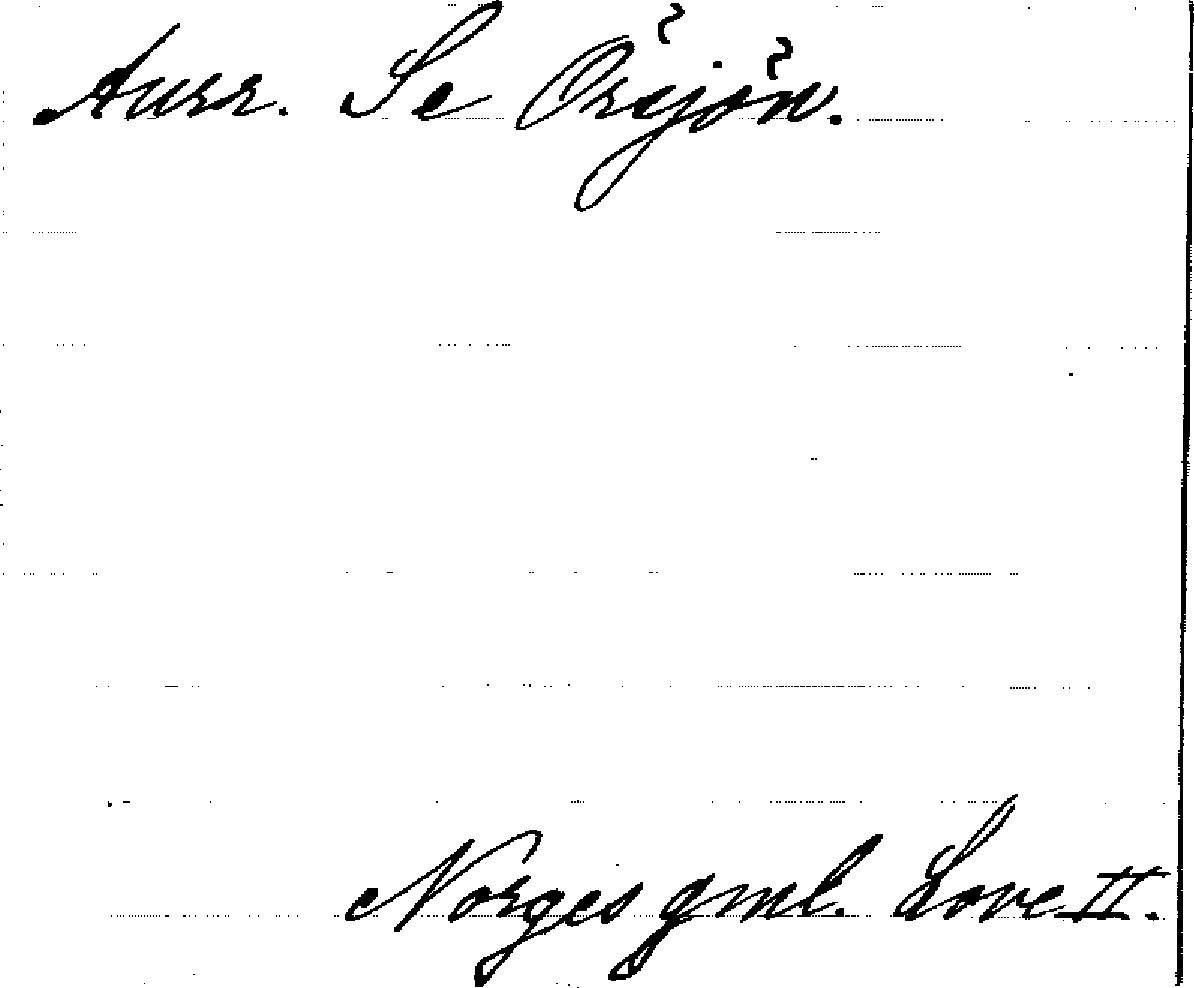 Aurr. Se Örsjön.
Norges gml. Love II.